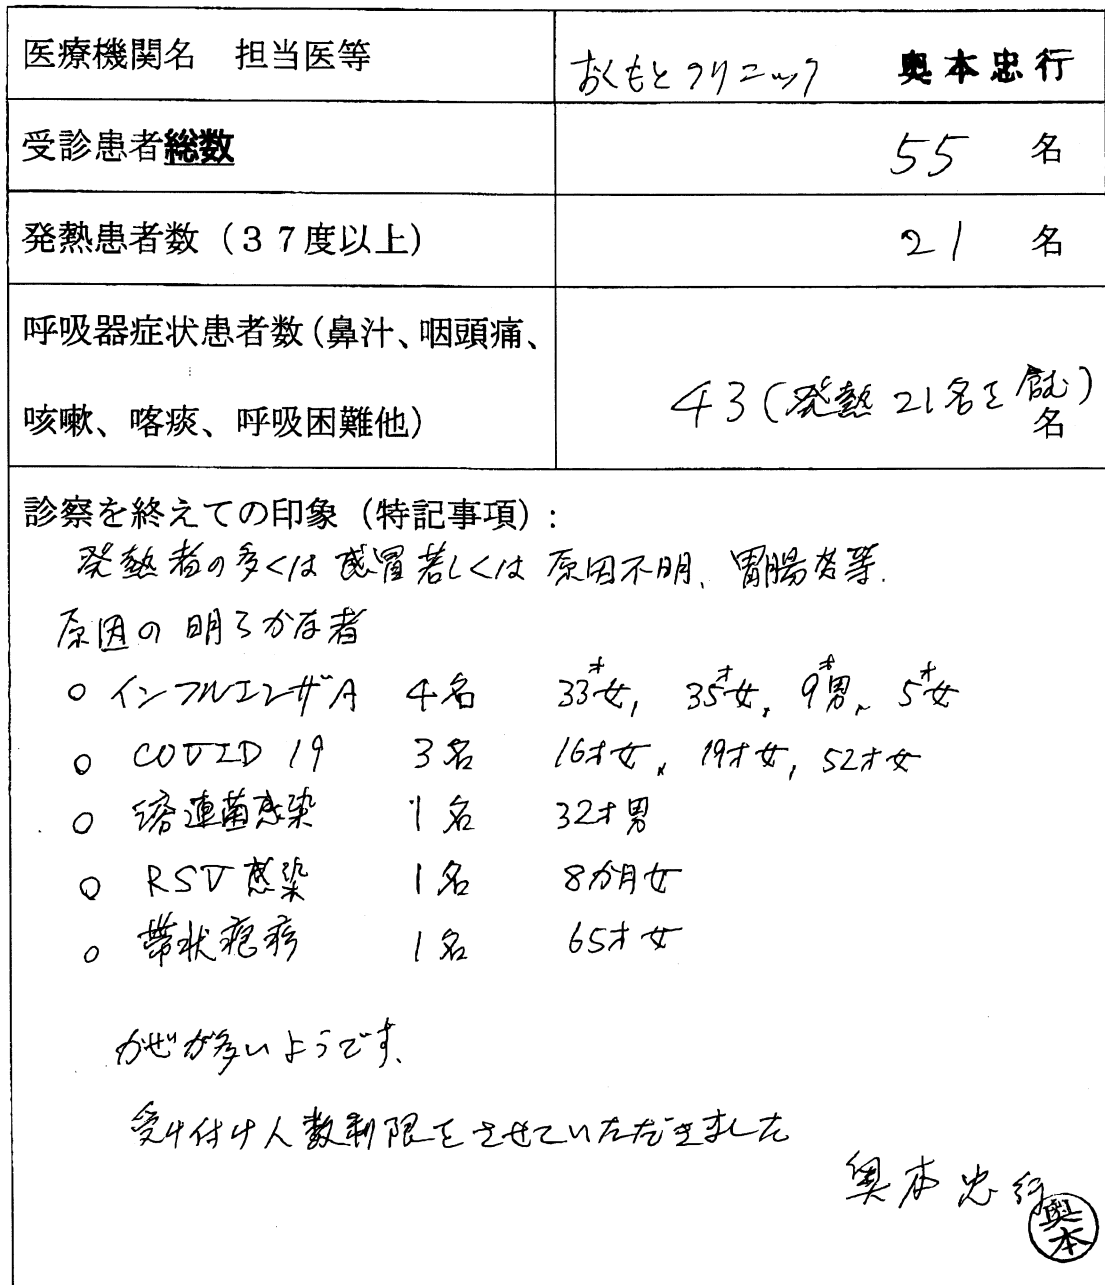 医療機関名　担当医等
おくもとクリニック　奥本忠行
受診患者総数
55 名
発熱患者数（３７度以上）
21 名
呼吸器症状患者数（鼻汁、咽頭痛、
咳嗽、喀痰、呼吸困難他）
43（発熱 21名を含む）
名
診察を終えての印象（特記事項）：
発熱者の多くは感冒若しくは原因不明、胃腸炎等.
原因の明らかな者
○ インフルエンザA 4名 33才女, 35才女, 9才男、5才女
○ COVID 19 3名 16才女、19才女, 52才女
○ 溶連菌感染 1名 32才男
○ RSV感染 1名 8か月女
○ 帯状疱疹 1名 65才女
かぜが多いようです、
受け付け人数制限をさせていただきました
奥本忠行
奥本